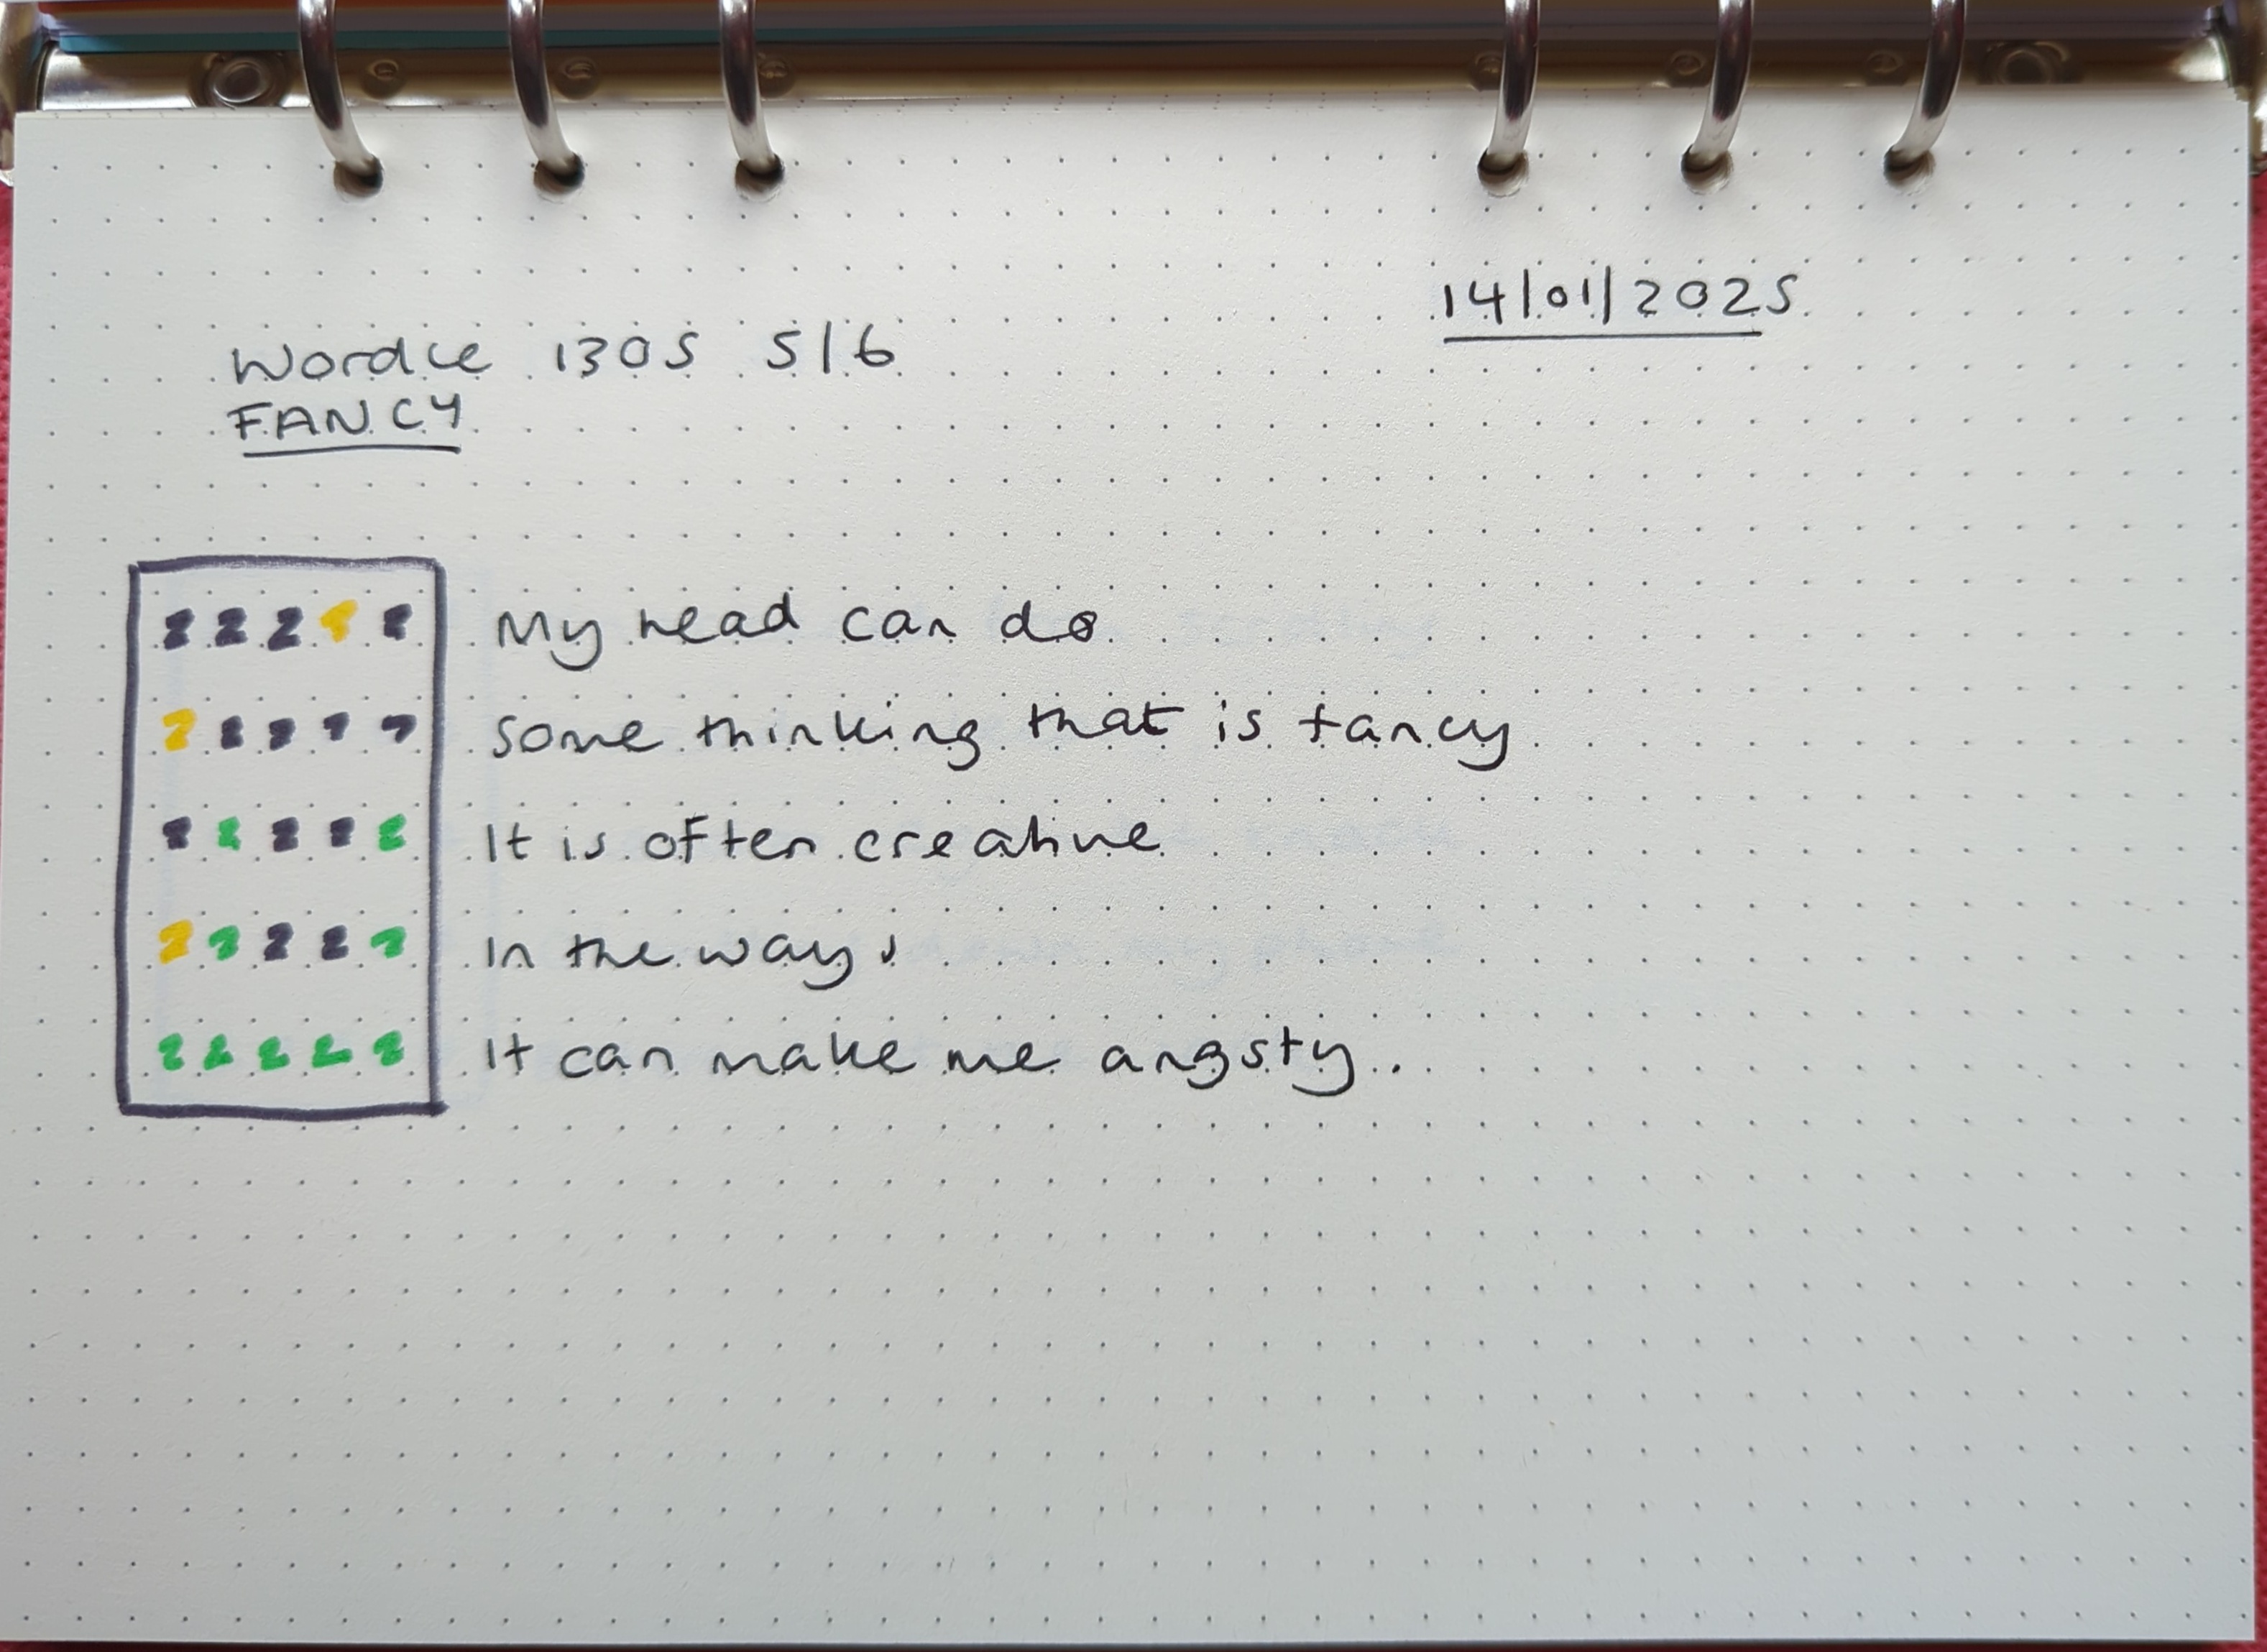 14/01/2025
Wordle 1305 5/6
FANCY
My head can do
some thinking that is fancy
It is often creative
In the ways
It can make me angsty.